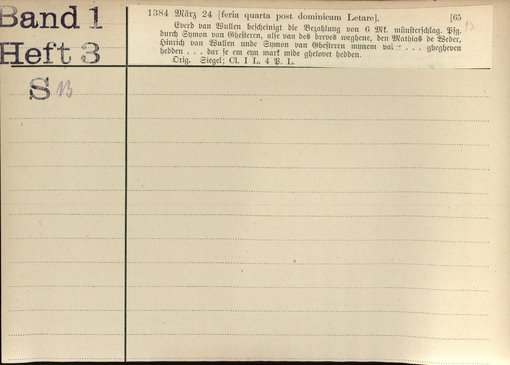 Band 1
Heft 3
S 13
1384 März 24 [feria quarta post dominicam Letare]. [65
Everd van Wullen bescheinigt die Bezahlung von 6 Mk. münsterschlag. Pfg.
durch Symon van Ghesteren, alse van des breves weghene, den Mathias de Weder,
Hinrich van Wullen unde Symon van Ghesteren mynem vai – . . . ghegheven
hedden . . . dar se em eyn mark mide ghelovet hedden.
Orig. Siegel; Cl. I L. 4 P. L.